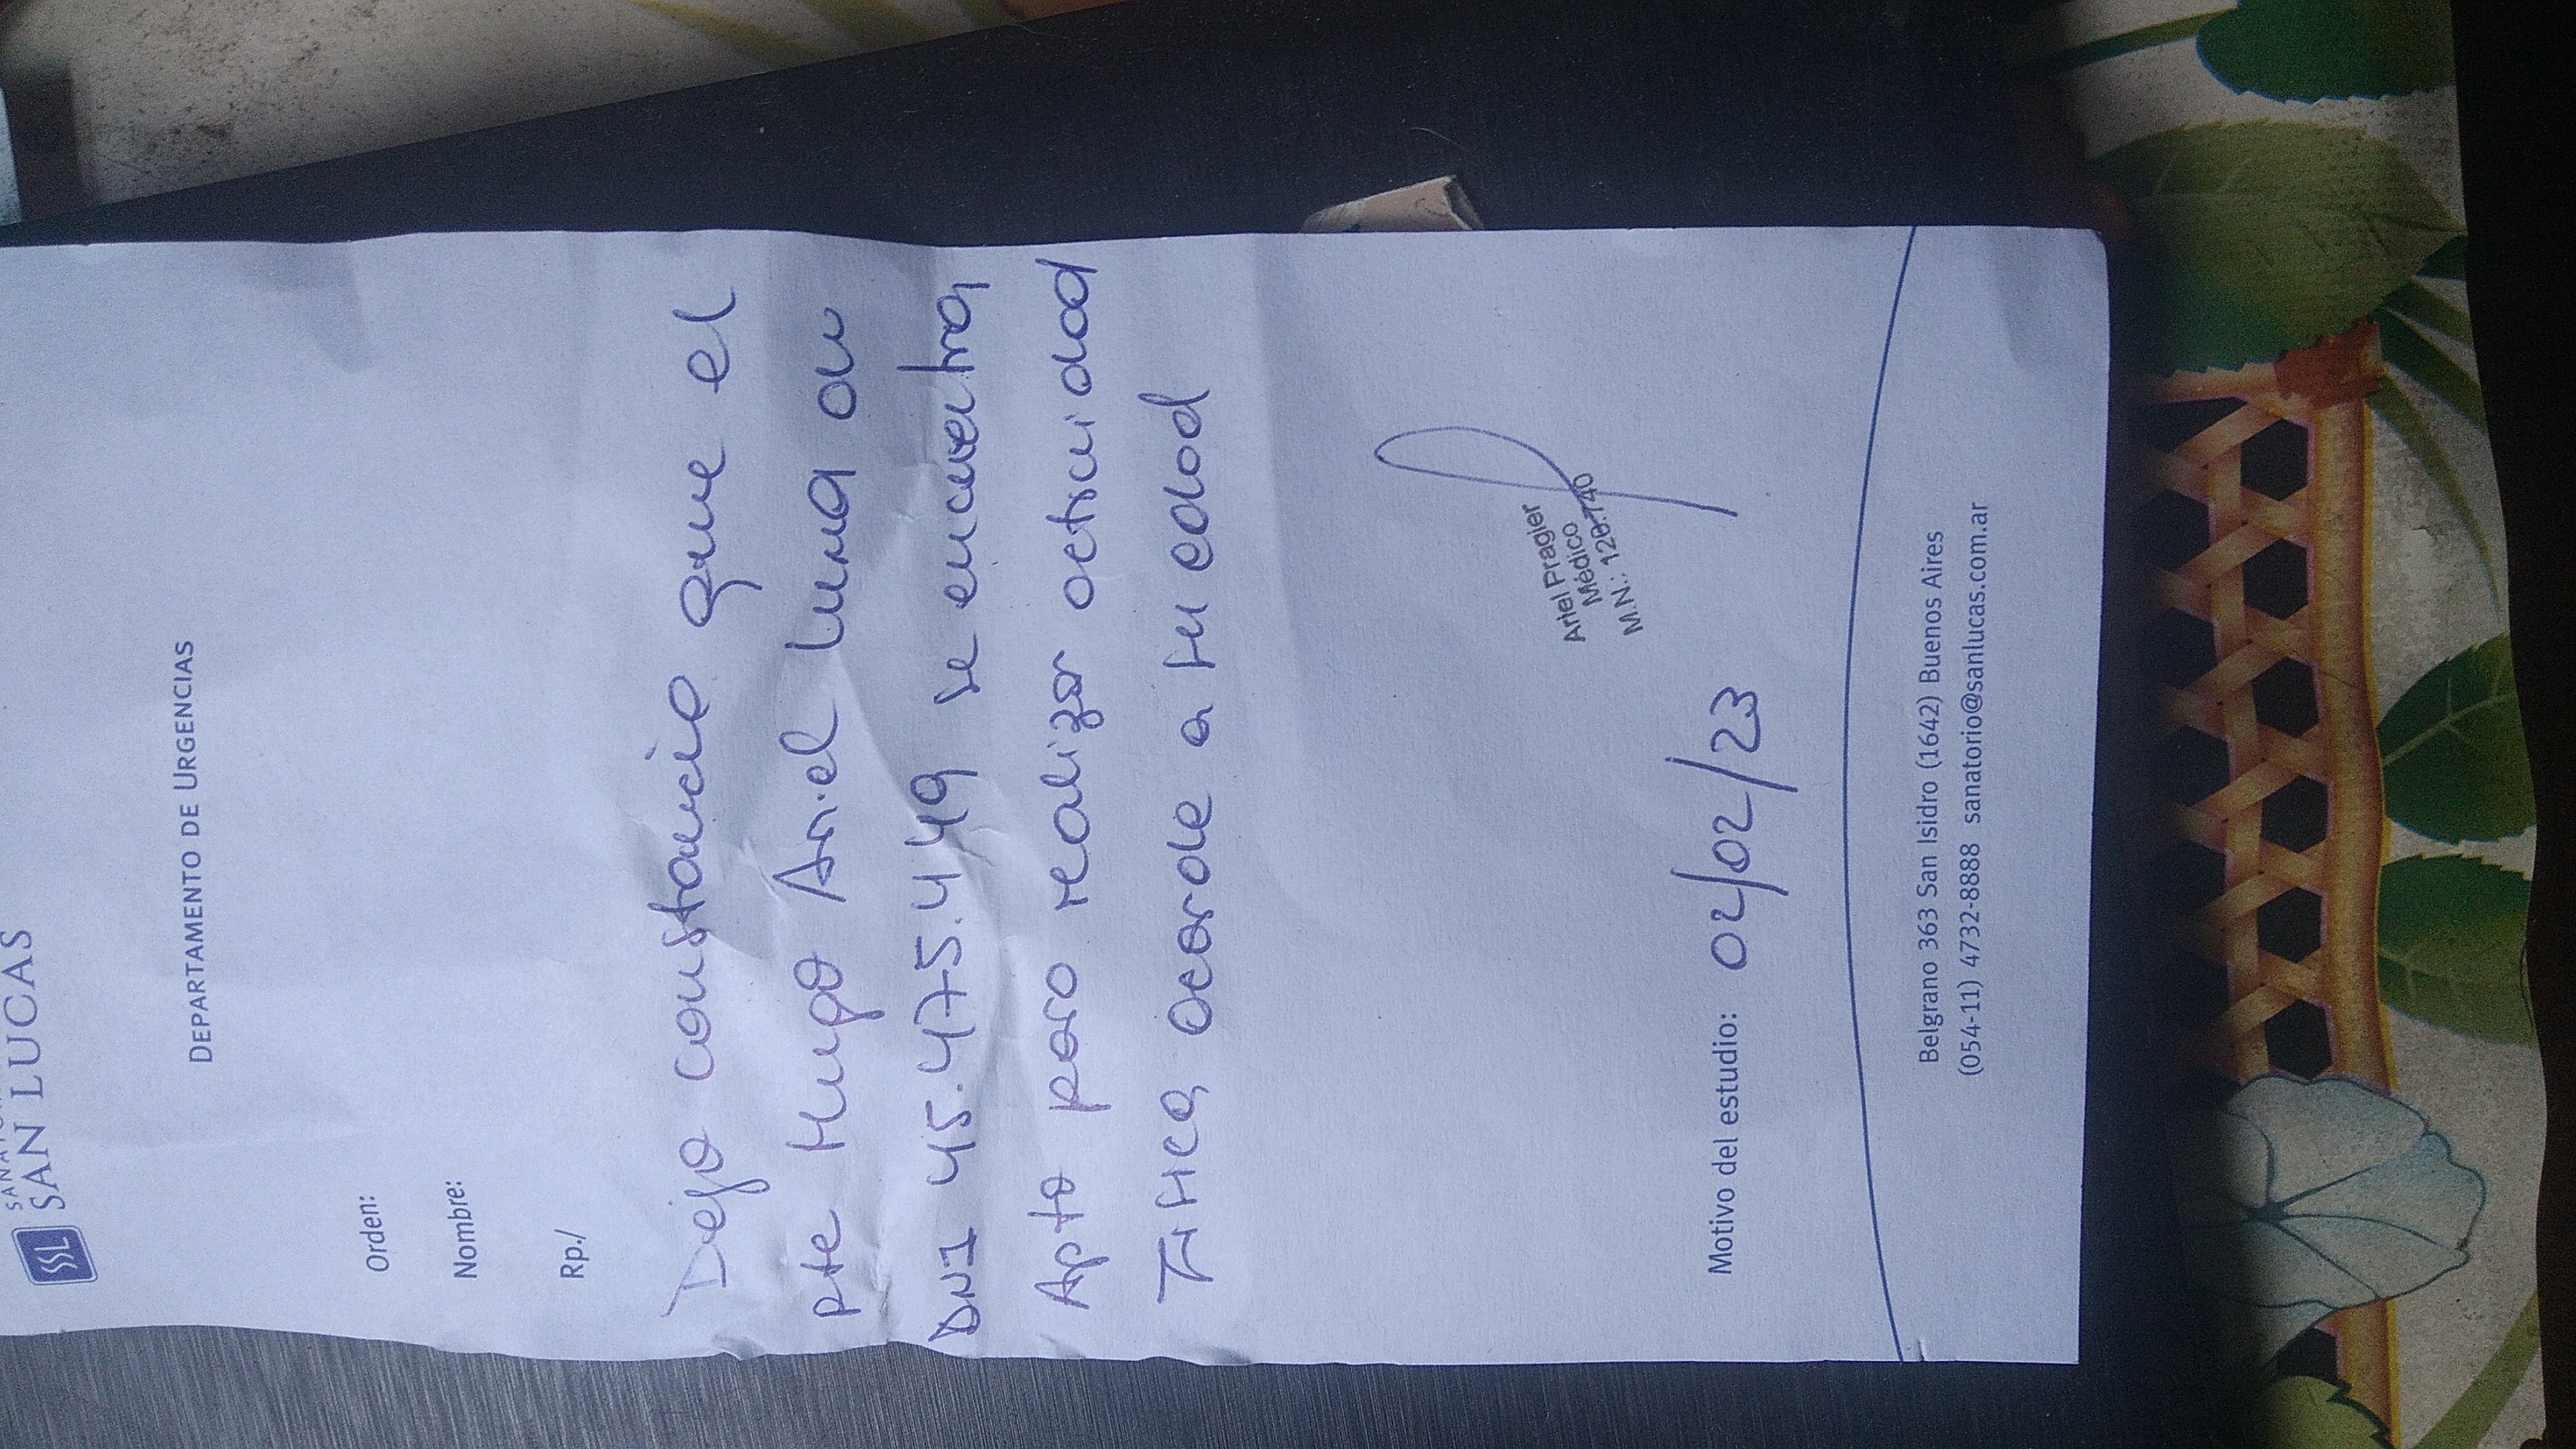 SSL
SAN LUCAS
DEPARTAMENTO DE URGENCIAS
Orden:
Nombre:
Rp./
Dejo constancia que el
pte Hugo Ariel Luna
DNI 45.475.449 se encuentra
Apto para realizar actividad
Física acorde a su edad
Ariel Pragier
Médico
M.N.:
Motivo del estudio: 04/02/23
Belgrano 363 San Isidro (1642) Buenos Aires
(054-11) 4732-8888 sanatorio@sanlucas.com.ar